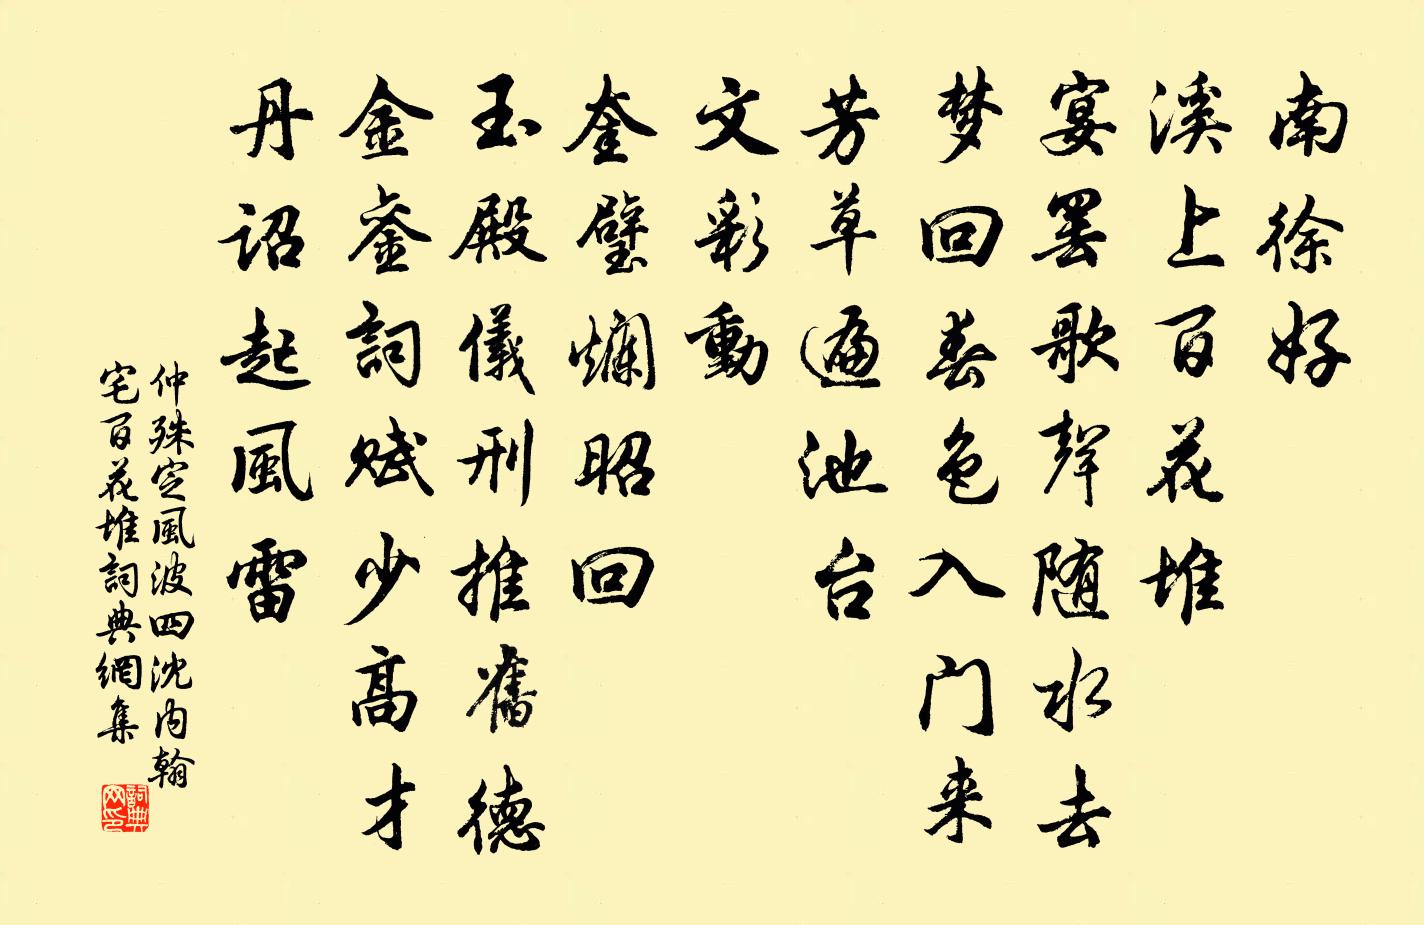 南徐好
溪上百花堆
宴罢歌聲随水去
梦回春色入门来
芳草遍池台
文彩動
奎璧爛昭回
玉殿儀刑推舊德
金銮詞赋少高才
丹诏起風雷
仲殊定風波四沈内翰
宅百花堆詞典網集
詞典网印